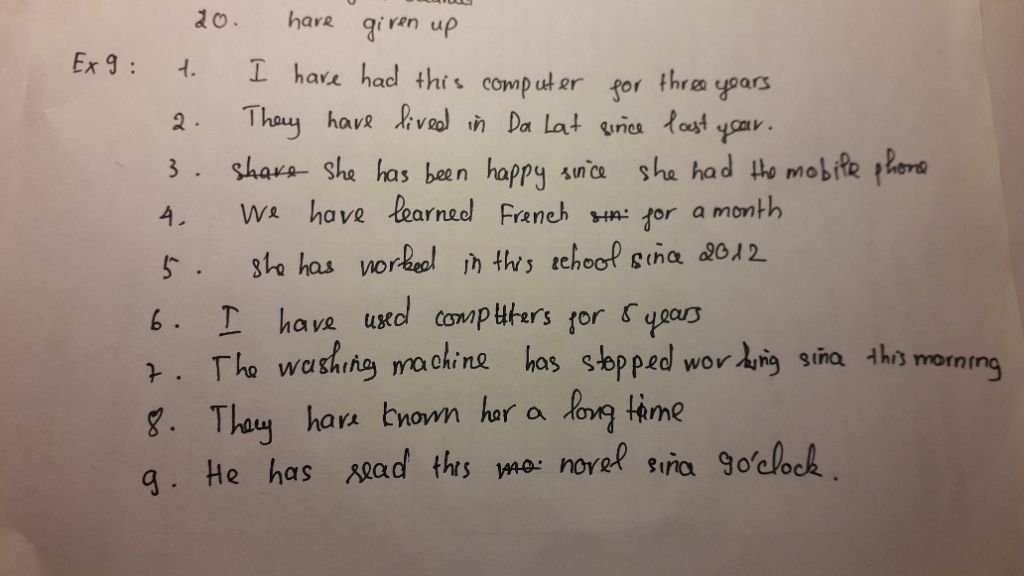 20. have given up
Ex 9 : 1. I have had this computer for three years
2. They have lived in Da Lat since last year.
3. share She has been happy since she had the mobile phone
4. We have learned French sin: for a month
5. She has worked in this school since 2012
6. I have used computters for 5 years
7. The washing machine has stopped working since this morning
8. They have known her a long time
9. He has read this mo: novel since 9o'clock.